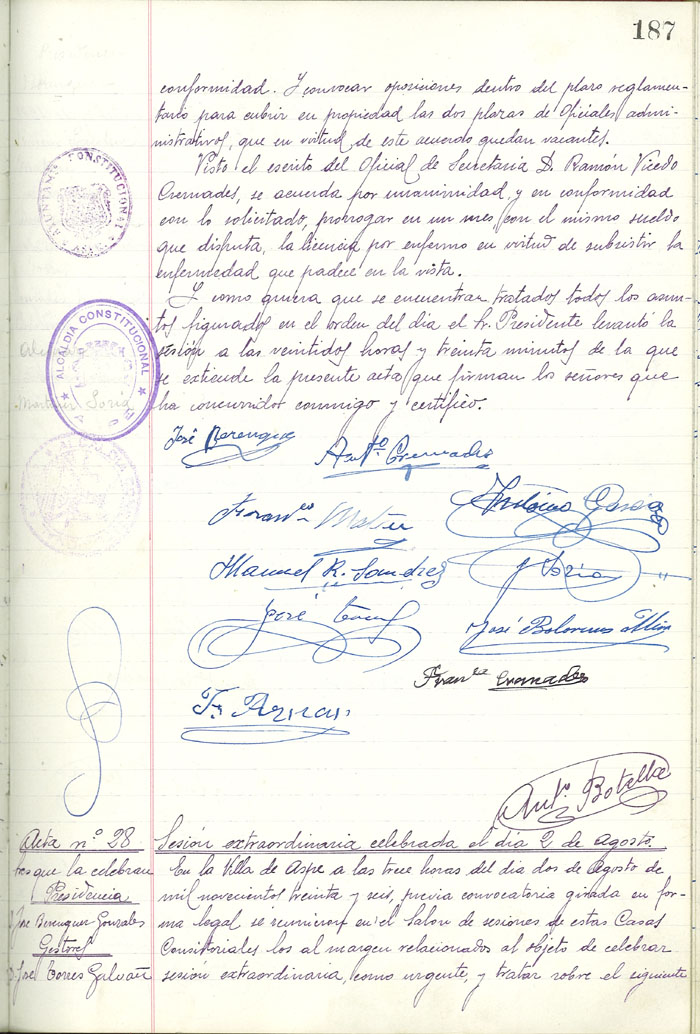 187
conformidad. Y convocar oposiciones dentro del plazo reglamen-
tario para cubrir en propiedad las dos plazas de Oficiales admi-
nistrativos, que en virtud de este acuerdo quedan vacantes.
Visto el escrito del Oficial de Secretaria D. Ramón Vicedo
Cremades, se acuerda por unanimidad y en conformidad
con lo solicitado, prorrogar en un mes, con el mismo sueldo
que disfruta, la licencia por enfermo en virtud de subsistir la
enfermedad que padece en la vista.
Y como quiera que se encuentran tratados todos los asun-
tos figurados en el orden del dia el Sr. Presidente levantó la
sesión a las veintidos horas y treinta minutos de la que
se extiende la presente acta que firman los señores que
ha concurrido conmigo y certifico.
AYUNTAMTO CONSTITUCIONAL
ALCALDIA CONSTITUCIONAL
ASPE
José Berenguer
Antº Cremades
Franco Mateu
Antonio García
Manuel R. Sanchez
J Soria
José
José Bolorinos
Franco Cremades
Antº Botella
Acta nº 28
Sesión extraordinaria celebrada el dia 2 de agosto.
res que la celebran
Presidencia
José Berenguer Gonzales
Gestores
D. José Torres Galvañ
En la Villa de Aspe a las trece horas del dia dos de Agosto de
mil novecientos treinta y seis, previa convocatoria girada en for-
ma legal se reunieron en el Salon de sesiones de estas Casas
Consitoriales los al margen relacionados al objeto de celebrar
sesión extraordinaria, como urgente, y tratar sobre el siguiente